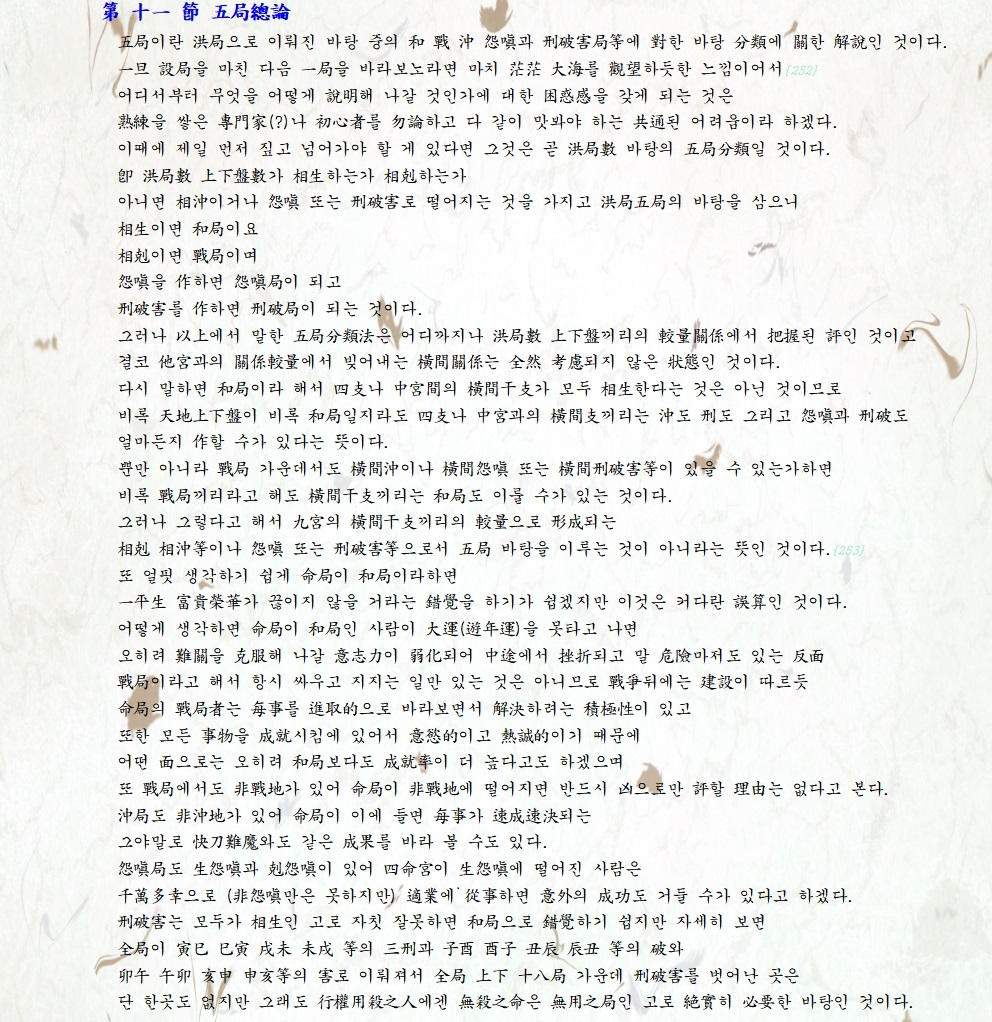 第 十一 節 五局總論
五局이란 洪局으로 이뤄진 바탕 중의 和 戰 沖 怨嗔과 刑破害局等에 對한 바탕 分類에 關한 解說인 것이다.
一旦 設局을 마친 다음 一局을 바라보노라면 마치 茫茫 大海를 觀望하듯한 느낌이어서{252}
어디서부터 무엇을 어떻게 說明해 나갈 것인가에 대한 困惑感을 갖게 되는 것은
熟練을 쌓은 專門家(?)나 初心者를 勿論하고 다 같이 맛봐야 하는 共通된 어려움이라 하겠다.
이때에 제일 먼저 짚고 넘어가야 할 게 있다면 그것은 곧 洪局數 바탕의 五局分類일 것이다.
卽 洪局數 上下盤數가 相生하는가 相剋하는가
아니면 相沖이거나 怨嗔 또는 刑破害로 떨어지는 것을 가지고 洪局五局의 바탕을 삼으니
相生이면 和局이요
相剋이면 戰局이며
怨嗔을 作하면 怨嗔局이 되고
刑破害를 作하면 刑破局이 되는 것이다.
그러나 以上에서 말한 五局分類法은 어디까지나 洪局數 上下盤끼리의 較量關係에서 把握된 評인 것이고
결코 他宮과의 關係較量에서 빚어내는 橫間關係는 全然 考慮되지 않은 狀態인 것이다.
다시 말하면 和局이라 해서 四支나 中宮間의 橫間干支가 모두 相生한다는 것은 아닌 것이므로
비록 天地上下盤이 비록 和局일지라도 四支나 中宮과의 橫間支끼리는 沖도 刑도 그리고 怨嗔과 刑破도
얼마든지 作할 수가 있다는 뜻이다.
뿐만 아니라 戰局 가운데서도 橫間沖이나 橫間怨嗔 또는 橫間刑破害等이 있을 수 있는가하면
비록 戰局끼리라고 해도 橫間干支끼리는 和局도 이룰 수가 있는 것이다.
그러나 그렇다고 해서 九宮의 橫間干支끼리의 較量으로 形成되는
相剋 相沖等이나 怨嗔 또는 刑破害等으로서 五局 바탕을 이루는 것이 아니라는 뜻인 것이다.{253}
또 얼핏 생각하기 쉽게 命局이 和局이라하면
一平生 富貴榮華가 끊이지 않을 거라는 錯覺을 하기가 쉽겠지만 이것은 커다란 誤算인 것이다.
어떻게 생각하면 命局이 和局인 사람이 大運(遊年運)을 못타고 나면
오히려 難關을 克服해 나갈 意志力이 弱化되어 中途에서 挫折되고 말 危險마저도 있는 反面
戰局이라고 해서 항시 싸우고 지지는 일만 있는 것은 아니므로 戰爭뒤에는 建設이 따르듯
命局의 戰局者는 每事를 進取的으로 바라보면서 解決하려는 積極性이 있고
또한 모든 事物을 成就시킴에 있어서 意慾的이고 熱誠的이기 때문에
어떤 面으로는 오히려 和局보다도 成就率이 더 높다고도 하겠으며
또 戰局에서도 非戰地가 있어 命局이 非戰地에 떨어지면 반드시 凶으로만 評할 理由는 없다고 본다.
沖局도 非沖地가 있어 命局이 이에 들면 每事가 速成速決되는
그야말로 快刀難魔와도 같은 成果를 바라 볼 수도 있다.
怨嗔局도 生怨嗔과 剋怨嗔이 있어 四命宮이 生怨嗔에 떨어진 사람은
千萬多幸으로 (非怨嗔만은 못하지만) 適業에 從事하면 意外의 成功도 거둘 수가 있다고 하겠다.
刑破害는 모두가 相生인 고로 자칫 잘못하면 和局으로 錯覺하기 쉽지만 자세히 보면
全局이 寅巳 巳寅 戌未 未戌 等의 三刑과 子酉 酉子 丑辰 辰丑 等의 破와
卯午 午卯 亥申 申亥等의 害로 이뤄져서 全局 上下 十八局 가운데 刑破害를 벗어난 곳은
단 한곳도 없지만 그래도 行權用殺之人에겐 無殺之命은 無用之局인 고로 絶實히 必要한 바탕인 것이다.